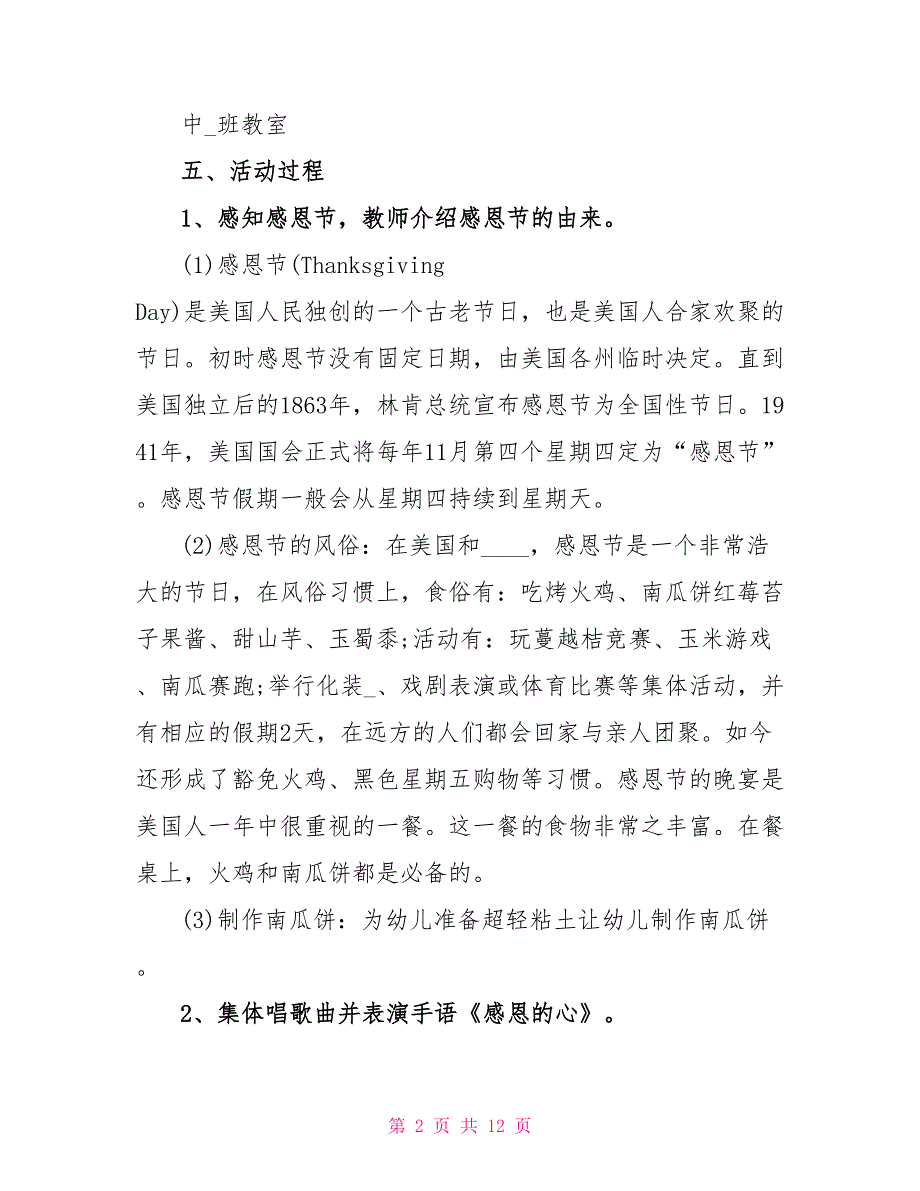 中_班教室
五、活动过程
1、感知感恩节，教师介绍感恩节的由来。
(1)感恩节(Thanksgiving
Day)是美国人民独创的一个古老节日，也是美国人合家欢聚的
节日。初时感恩节没有固定日期，由美国各州临时决定。直到
美国独立后的1863年，林肯总统宣布感恩节为全国性节日。19
41年，美国国会正式将每年11月第四个星期四定为“感恩节”
。感恩节假期一般会从星期四持续到星期天。
(2)感恩节的风俗：在美国和____，感恩节是一个非常浩
大的节日，在风俗习惯上，食俗有：吃烤火鸡、南瓜饼红莓苔
子果酱、甜山芋、玉蜀黍;活动有：玩蔓越桔竞赛、玉米游戏
、南瓜赛跑;举行化装_、戏剧表演或体育比赛等集体活动，并
有相应的假期2天，在远方的人们都会回家与亲人团聚。如今
还形成了豁免火鸡、黑色星期五购物等习惯。感恩节的晚宴是
美国人一年中很重视的一餐。这一餐的食物非常之丰富。在餐
桌上，火鸡和南瓜饼都是必备的。
(3)制作南瓜饼：为幼儿准备超轻粘土让幼儿制作南瓜饼
。
2、集体唱歌曲并表演手语《感恩的心》。
第 2 页 共 12 页